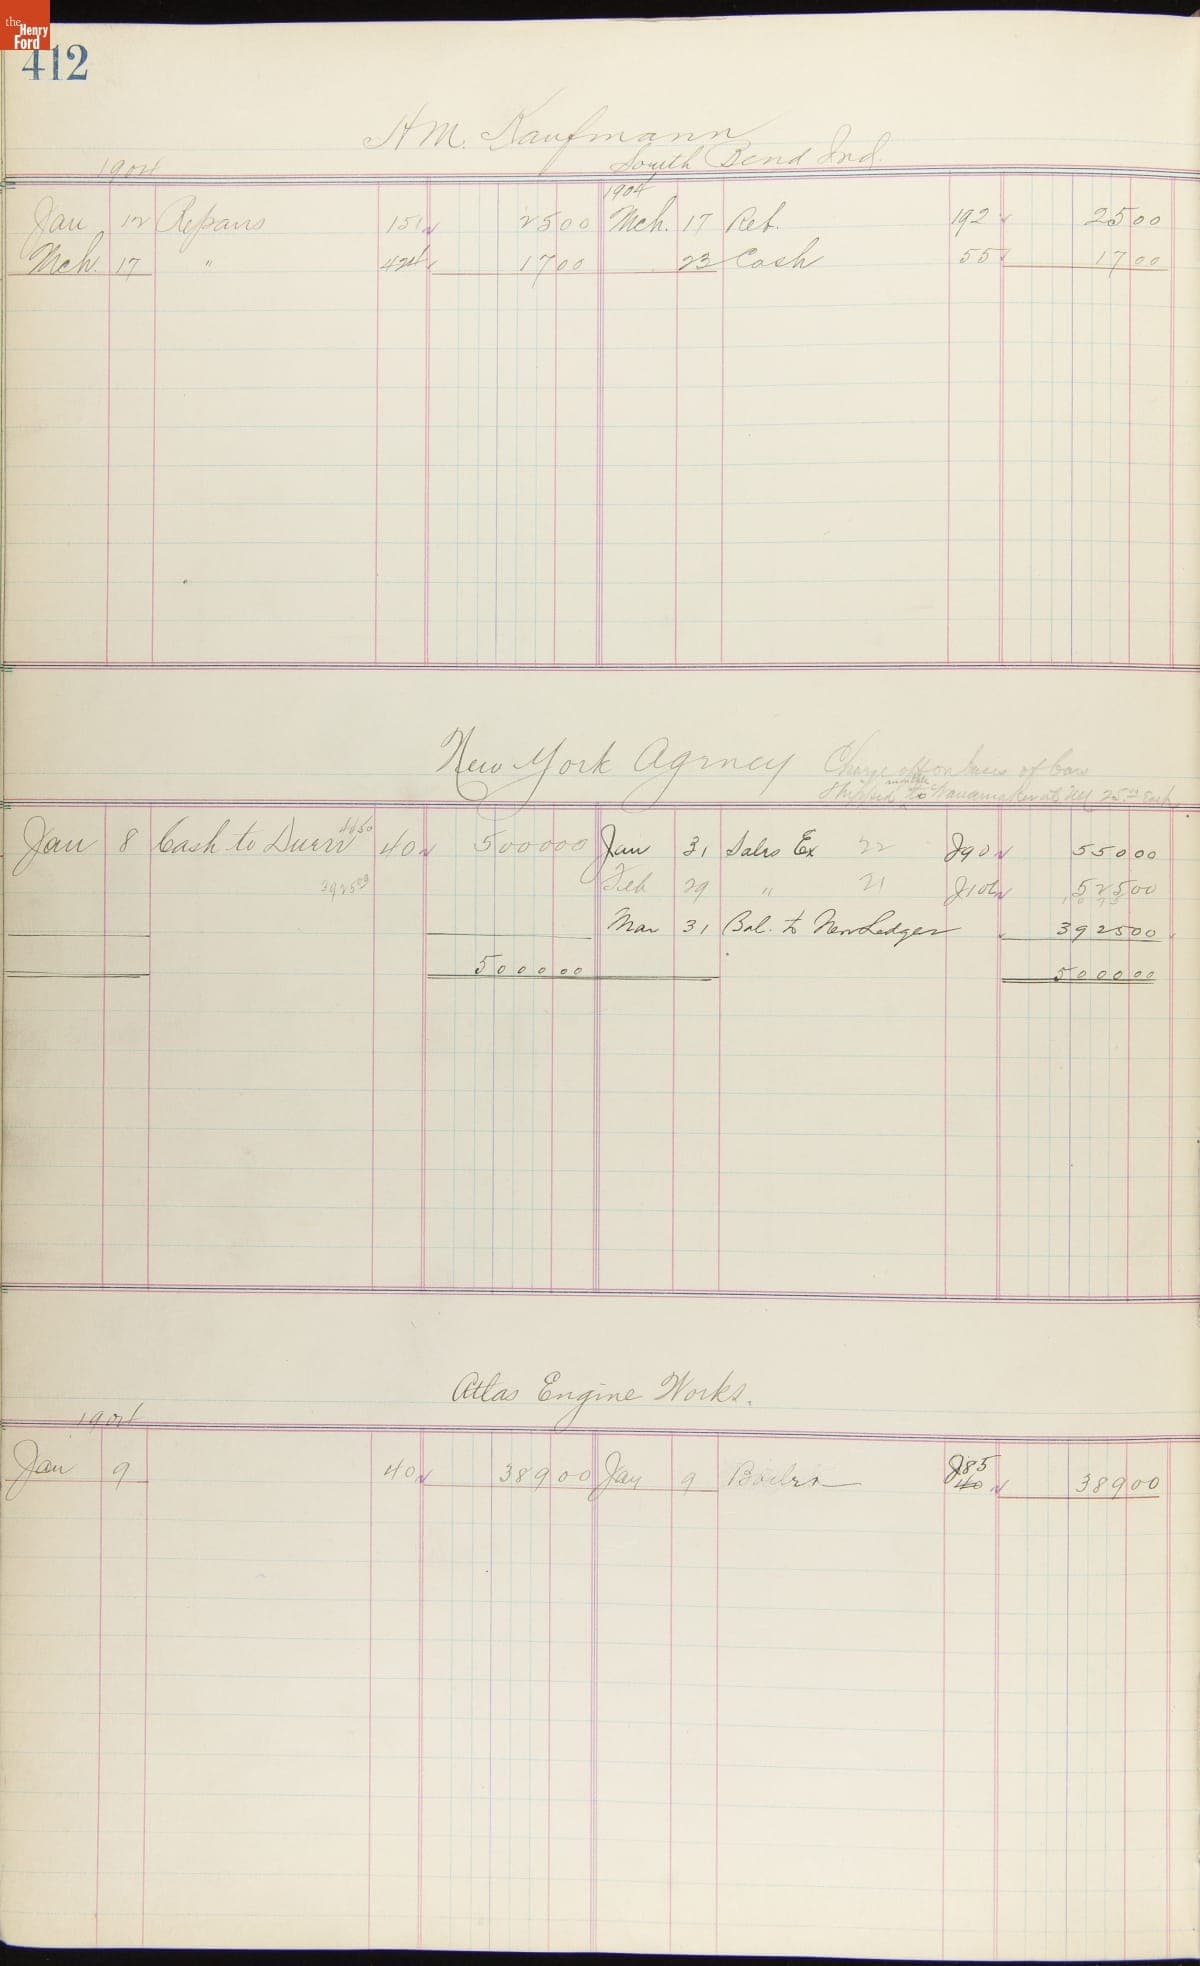 the Henry Ford
412
H M. Kaufmann
South Bend Ind.
1904 1904
Jan 12 Repairs 151 25 00 Mch. 17 Ret. 192 25 00
Mch. 17 " 424 17 00 23 Cash 55 17 00
New York Agency Charge off on basis of Cars
shipped to Wanamaker at NY 25.00 Each
Jan 8 Cash to Duerr 4450 40 5000 00 Jan 31 Sales Ex 22 J90 550 00
3925 00 Feb 29 " 21 J106 525 00
1075
Mar 31 Bal. to New Ledger 3925 00
5000 00 5000 00
Atlas Engine Works.
1904
Jan 9 40 389 00 Jan 9 Boilers J85 389 00
40